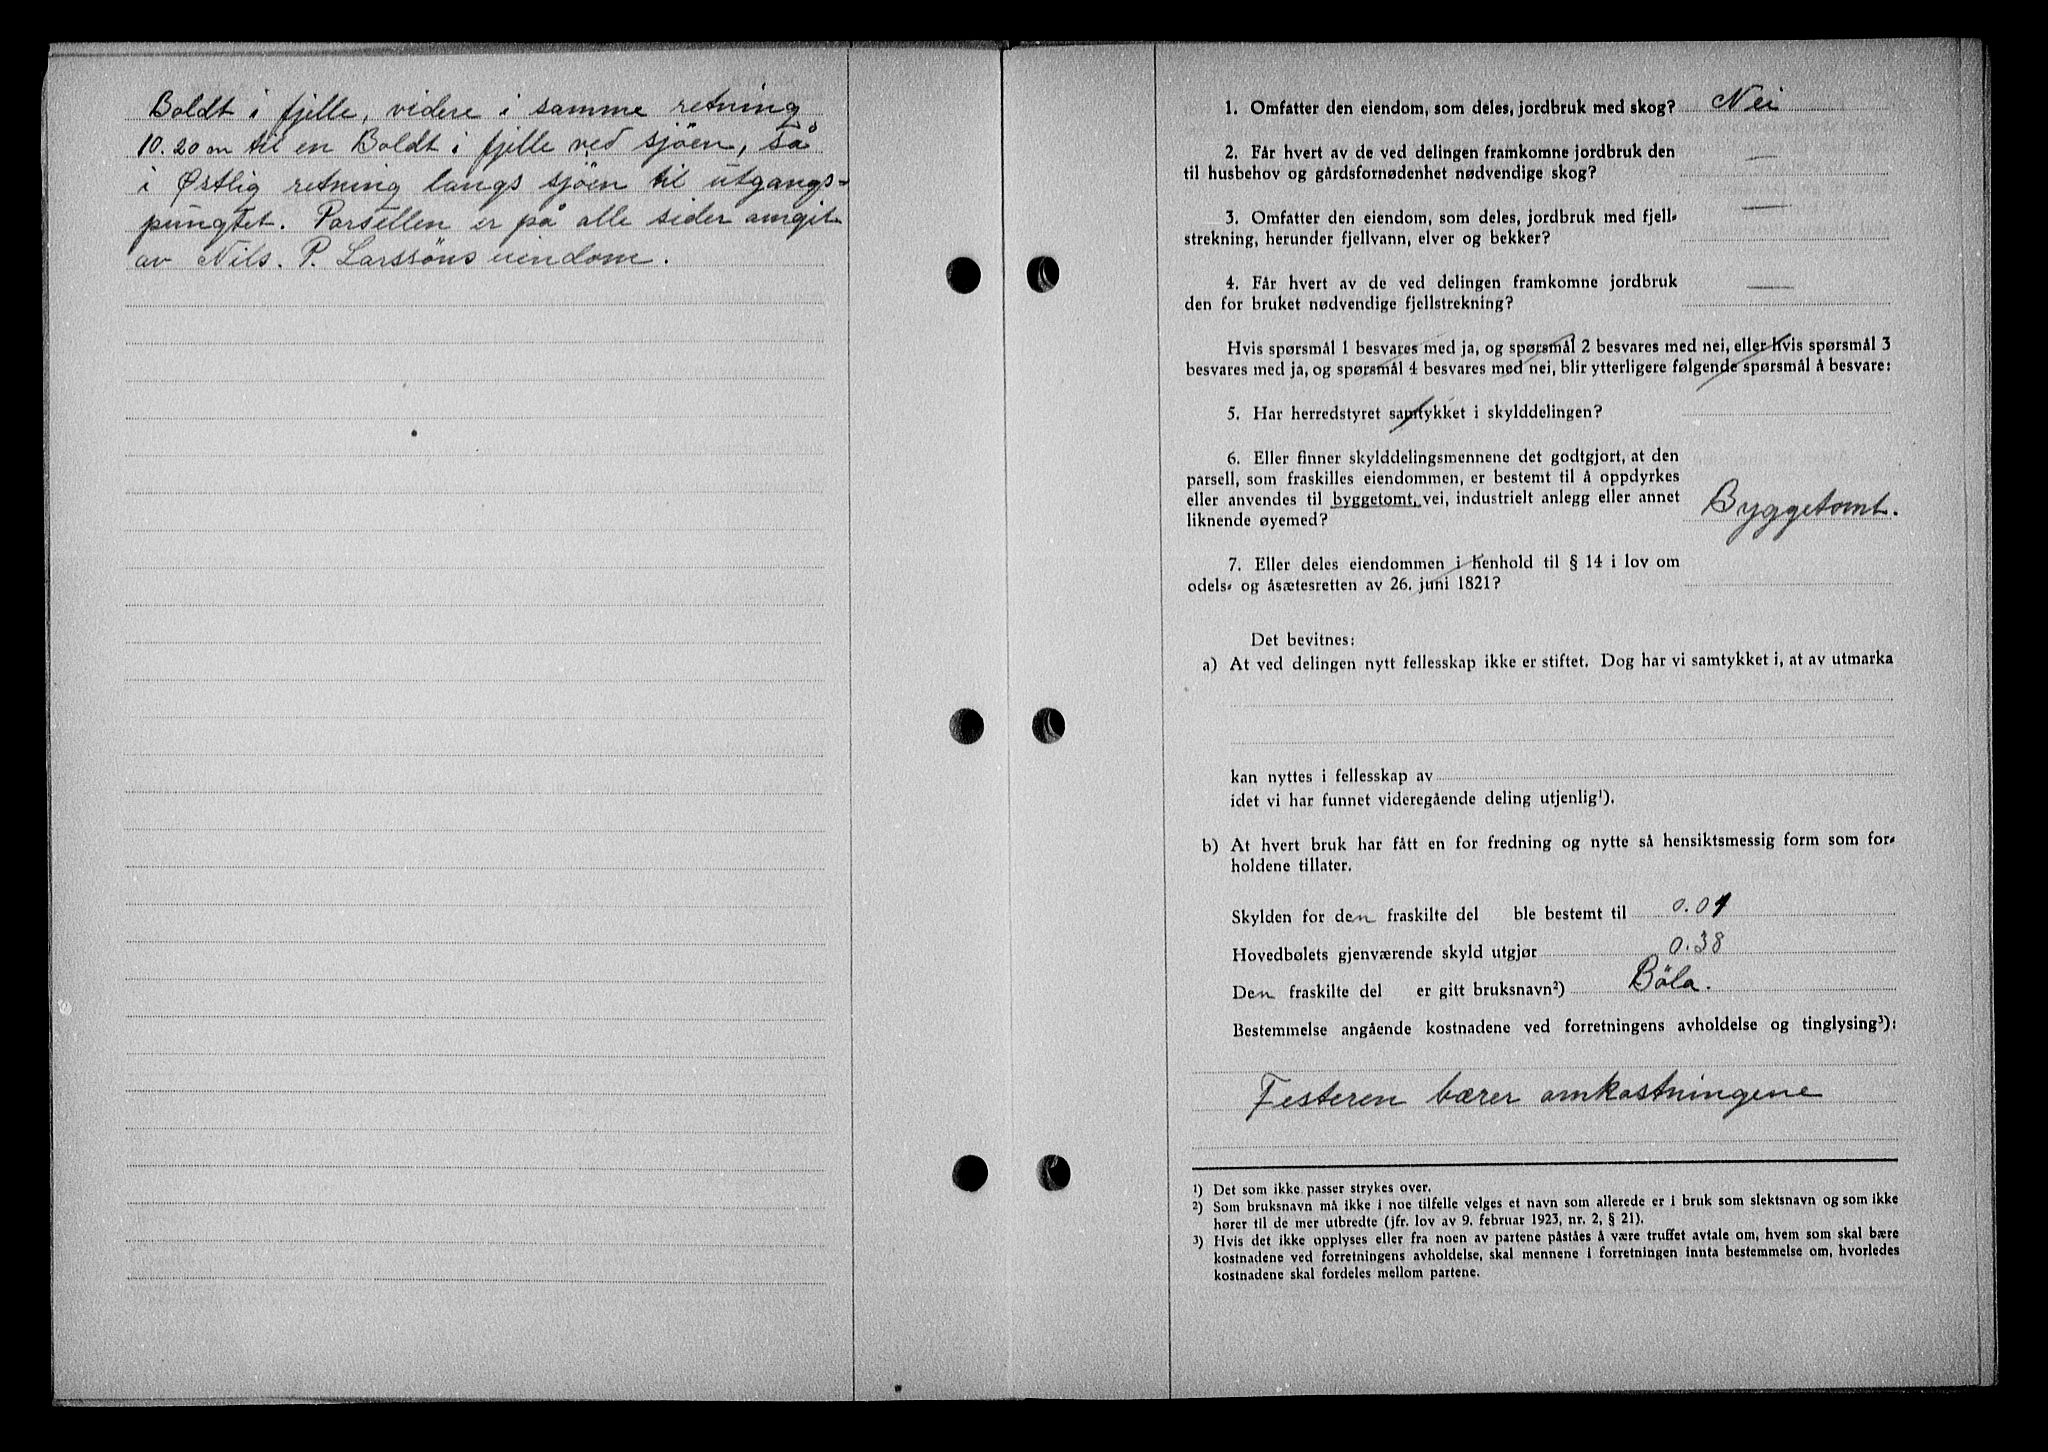 Boldt i fjelle, videre i samme retning
10.20 m til en Boldt i fjelle ved sjöen, så
i Østlig retning langs sjöen til utgangs=
pungtet. Parsellen er på alle sider omgit
av Nils. P. Larssöns eiendom.
1. Omfatter den eiendom, som deles, jordbruk med skog? Nei
2. Får hvert av de ved delingen framkomne jordbruk den
til husbehov og gårdsfornødenhet nødvendige skog? —
3. Omfatter den eiendom, som deles, jordbruk med fjell-
strekning, herunder fjellvann, elver og bekker? —
4. Får hvert av de ved delingen framkomne jordbruk
den for bruket nødvendige fjellstrekning? —
Hvis spørsmål 1 besvares med ja, og spørsmål 2 besvares med nei, eller hvis spørsmål 3
besvares med ja, og spørsmål 4 besvares med nei, blir ytterligere følgende spørsmål å besvare:
5. Har herredstyret samtykket i skylddelingen?
6. Eller finner skylddelingsmennene det godtgjort, at den
parsell, som fraskilles eiendommen, er bestemt til å oppdyrkes
eller anvendes til byggetomt, vei, industrielt anlegg eller annet
liknende øyemed? Byggetomt.
7. Eller deles eiendommen i henhold til § 14 i lov om
odels- og åsætesretten av 26. juni 1821?
Det bevitnes:
a) At ved delingen nytt fellesskap ikke er stiftet. Dog har vi samtykket i, at av utmarka
kan nyttes i fellesskap av
idet vi har funnet videregående deling utjenlig¹).
b) At hvert bruk har fått en for fredning og nytte så hensiktsmessig form som for-
holdene tillater.
Skylden for den fraskilte del ble bestemt til 0.01
Hovedbølets gjenværende skyld utgjør 0.38
Den fraskilte del er gitt bruksnavn²) Böla.
Bestemmelse angående kostnadene ved forretningens avholdelse og tinglysing³):
Festeren bærer omkostningene
¹) Det som ikke passer strykes over.
²) Som bruksnavn må ikke i noe tilfelle velges et navn som allerede er i bruk som slektsnavn og som ikke
hører til de mer utbredte (jfr. lov av 9. februar 1923, nr. 2, § 21).
³) Hvis det ikke opplyses eller fra noen av partene påstås å være truffet avtale om, hvem som skal bære
kostnadene ved forretningens avholdelse, skal mennene i forretningen innta bestemmelse om, hvorledes
kostnadene skal fordeles mellom partene.